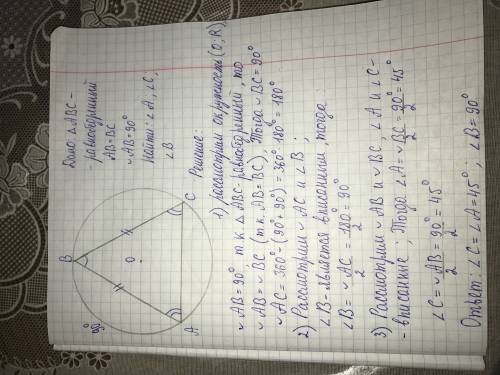 Дано: △ABC -
- равнобедренный
AB=BC
◡AB=90°
Найти: ∠A, ∠C,
∠B
B
O
A
C
90°
Решение:
1) рассмотрим окружность (O; R)
◡AB=90°, т.к △ABC-равнобедренный, то
◡AB=◡BC (т.к. AB=BC), Тогда ◡BC=90°
◡AC=360°-(90°+90°)=360°-180°=180°
2) Рассмотрим ◡AC и ∠B;
∠B-является вписанным, тогда
∠B=◡AC/2=180°/2=90°
3) Рассмотрим ◡AB и ◡BC, ∠A и ∠C-
- вписанные; Тогда ∠A=◡BC/2=90°/2=45°
∠C=◡AB/2=90°/2=45°
Ответ: ∠C=∠A=45°; ∠B=90°